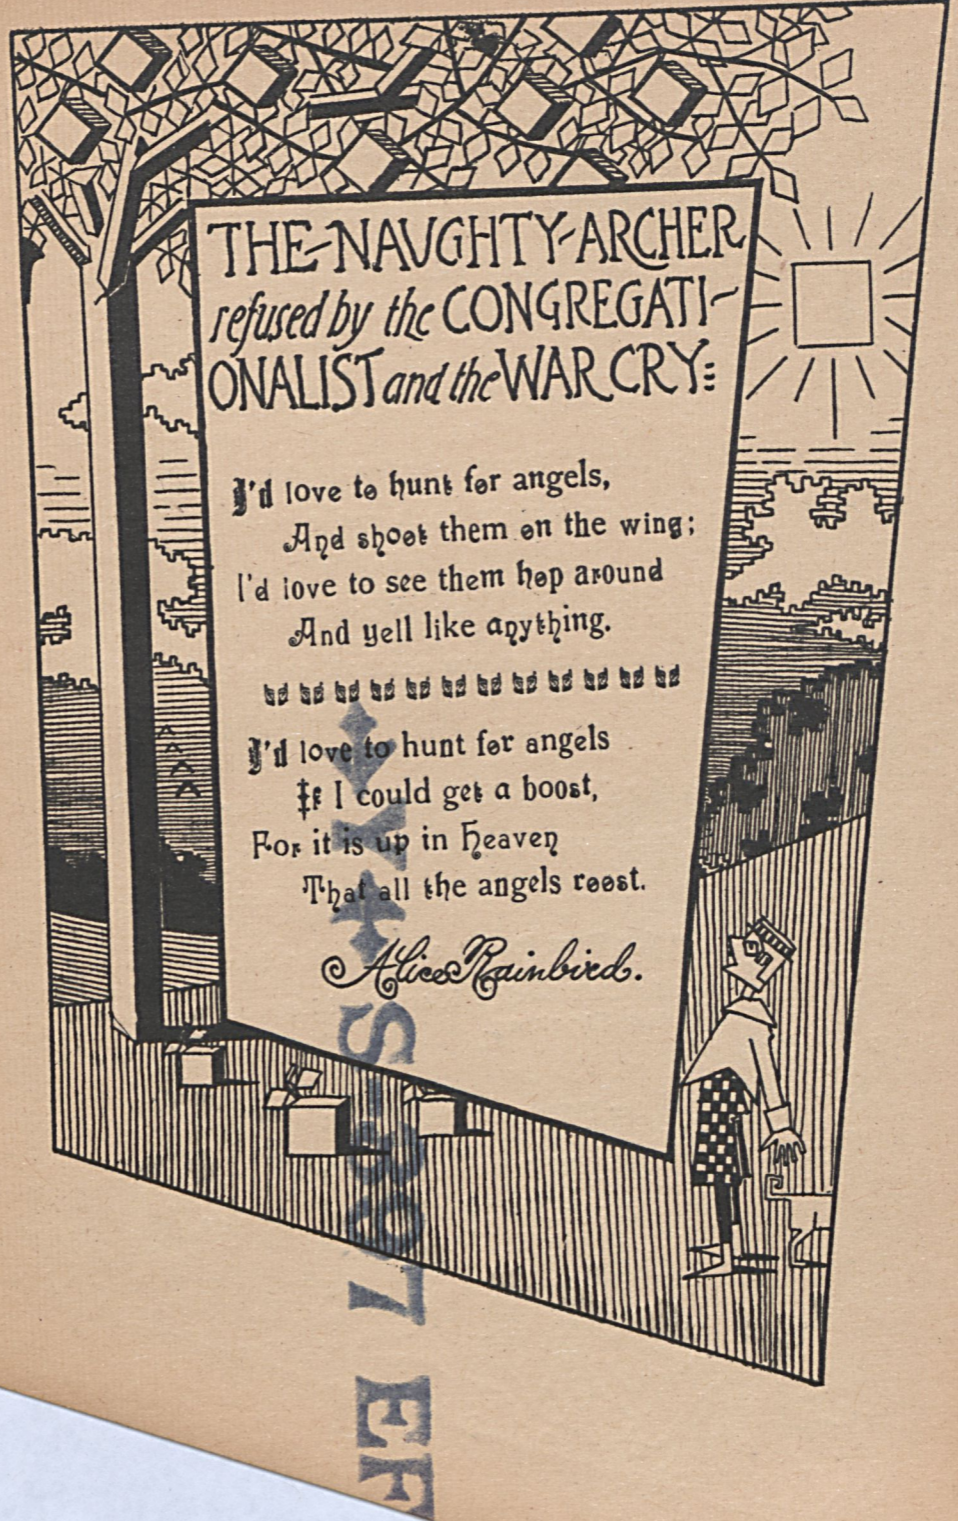 THE-NAUGHTY-ARCHER
refused by the CONGREGATI-
ONALIST and the WAR CRY:
I'd love to hunt for angels,
And shoot them on the wing;
I'd love to see them hop around
And yell like anything.
I'd love to hunt for angels
If I could get a boost,
For it is up in Heaven
That all the angels roost.
Alice Rainbird.